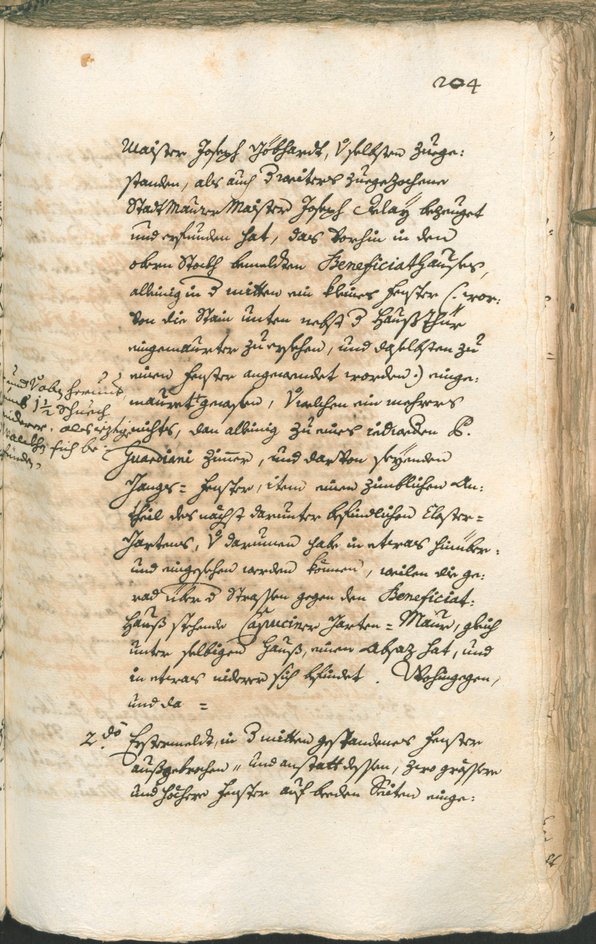 204
Maister Joseph Göbhardt, selbsten zuege:
standen, als auch weiters zuegezochene
Stadt Maurer Maister Joseph bezeuget
und erfunden hat, das vorhin in den
obern Stockh bemeldten Beneficiathauses,
alleinig in mitten ein kleines Fenster (: wor:
von die Stain unten nebst Haußthür
eingemaurter zu ersehen, und daselbsten zu
einem Fenster angewendet worden :) einge:
mauret gewesen, welchen ein mehrers
nichts, dan alleinig zu eines iedianden P.
Guardiani Zimer, und darvon seyenden
Gangs = Fenster, item einen zimblichen An:
theil des nächst darunter befindlichen Closter =
Gartens, darumen habe in etwas hinüber =
und eingesehen werden können, weilen die ge:
rad über Strassen gegen den Beneficiat:
Hauß stehende Capuciner Garten = Maur, gleich
unter selbigen Hauß, einen Absaz hat, und
in etwas niderer sich befindet. Wohingegen,
und da =
2.do Erstermeldt, in mitten gestandenes Fenster
außgebrochen, und anstatt dessen, zwo grössere
und höchere Fenster auf beeden Seiten einge:
und herumb
umb 1½ Schuech
niderer, als iezig
sich be:
finden,